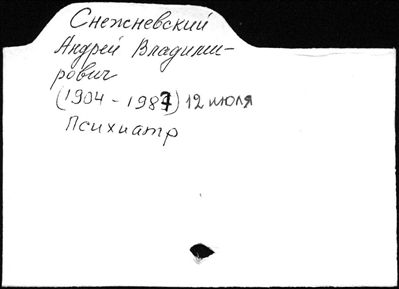 Снежневский
Андрей Владими-
рович
(1904 - 1987) 12 июля
Психиатр